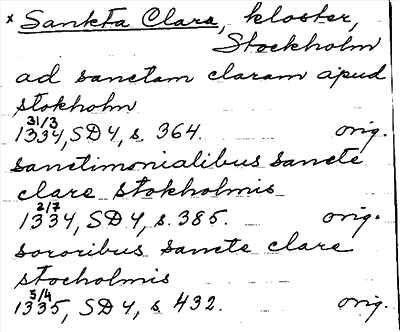 × Sankta Clara, kloster,
Stockholm
ad sanctam claram apud
stokholm
31/3
1334, SD4, s. 364. orig.
sanctimonialibus sancte
clare stokholmis
2/7
1334, SD4, s. 385. orig.
sororibus sancte clare
stocholmis
5/4
1335, SD4, s 432. orig.